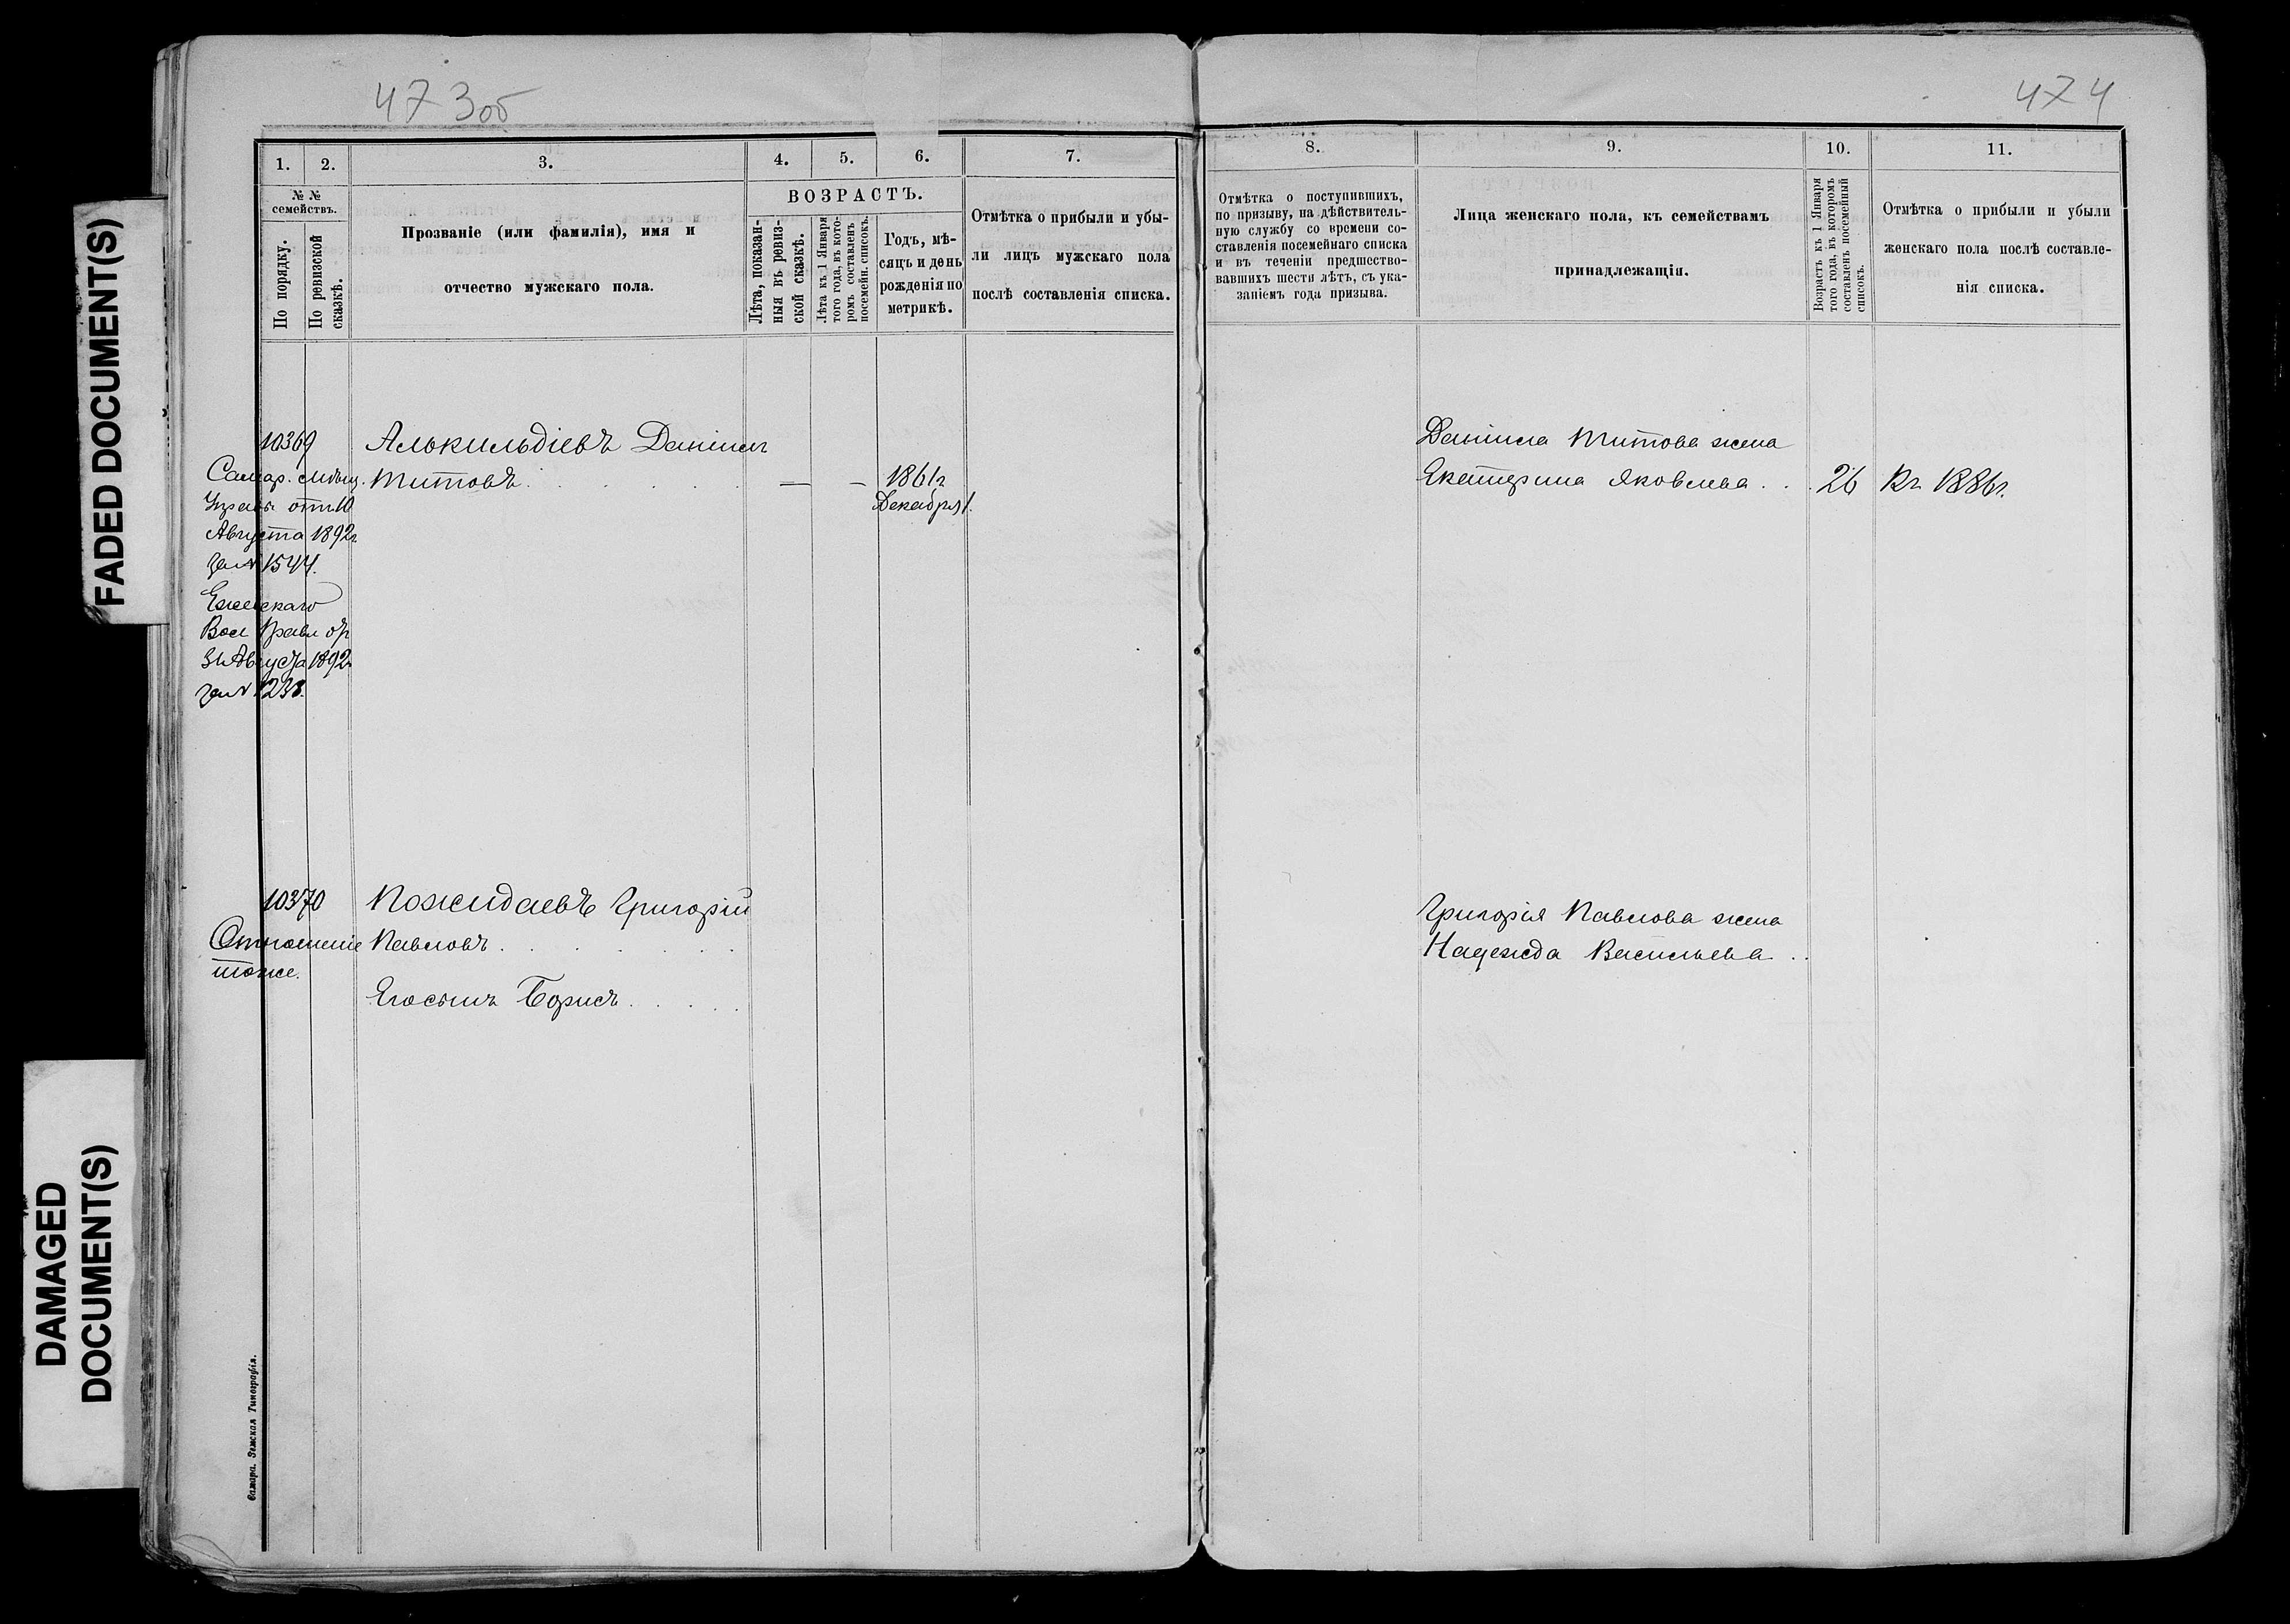 473об
474
1.
2.
3.
4.
5.
6.
7.
8.
9.
10.
11.
№ №
семействъ.
По порядку.
По ревизской
сказкѣ.
Прозваніе (или фамилія), имя и
отчество мужскаго пола.
ВОЗРАСТЪ.
Лѣта, показан-
ныя въ ревиз-
ской сказкѣ.
Лѣта къ 1 Января
того года, въ кото-
ромъ составленъ
посемейн. списокъ.
Годъ, мѣ-
сяцъ и день
рожденія по
метрикѣ.
Отмѣтка о прибыли и убы-
ли лицъ мужскаго пола
послѣ составленія списка.
Отмѣтка о поступившихъ,
по призыву, на дѣйствитель-
ную службу со времени со-
ставленія посемейнаго списка
и въ теченіи предшество-
вавшихъ шести лѣтъ, съ ука-
заніемъ года призыва.
Лица женскаго пола, къ семействамъ
принадлежащія.
Возрастъ къ 1 Января
того года, въ которомъ
составленъ посемейный
списокъ.
Отмѣтка о прибыли и убыли
женскаго пола послѣ составле-
нія списка.
10369
Самар. мѣщ.
Управы отъ 10
Августа 1892г.
за № 1544.
Вол Правл отъ
31 Августа 1892
за № 1233.
Алокильдіевъ Даніилъ
Титовъ
— —
1861г
Декабря 1.
Даніила Титова жена
Екатерина Яковлева . . 26 Къ 1886г.
10370
Отношеніе
тоже.
Пожидаевъ Григорій
Павловъ
Его сынъ Борисъ
Григорія Павлова жена
Надежда Васильева . .
Самара. Земская Типографія.
FADED DOCUMENT(S)
DAMAGED
DOCUMENT(S)